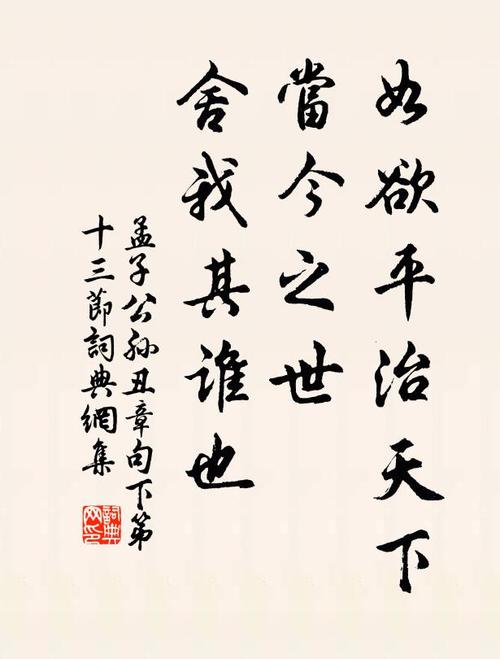 如欲平治天下
當今之世
舍我其誰也
孟子公孫丑章句下第
十三節詞典網集